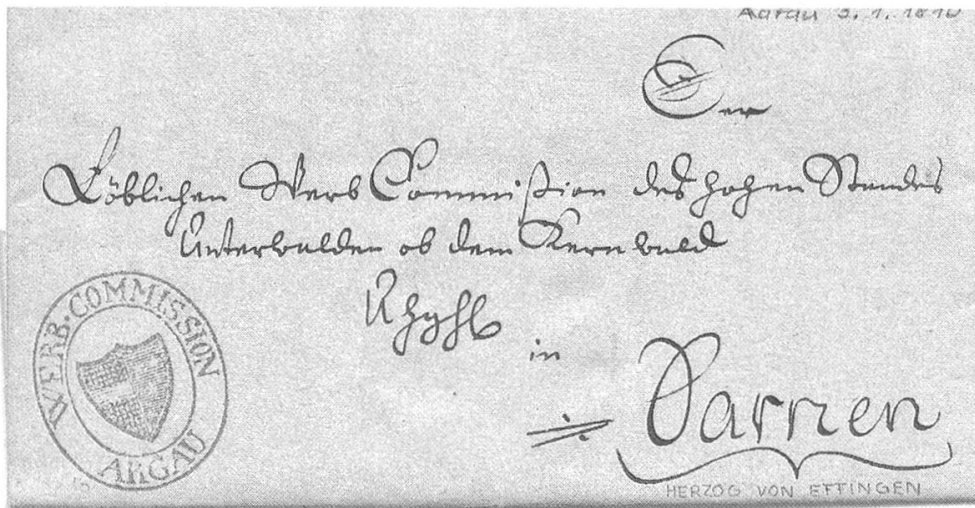 Aarau 3. 1. 1810
Der
Löblichen Werb Commißion des hohen Standes
Unterwalden ob dem Kernwald
in
Sarnen
WERB. COMMISSION
ARGAU
HERZOG VON EFFINGEN